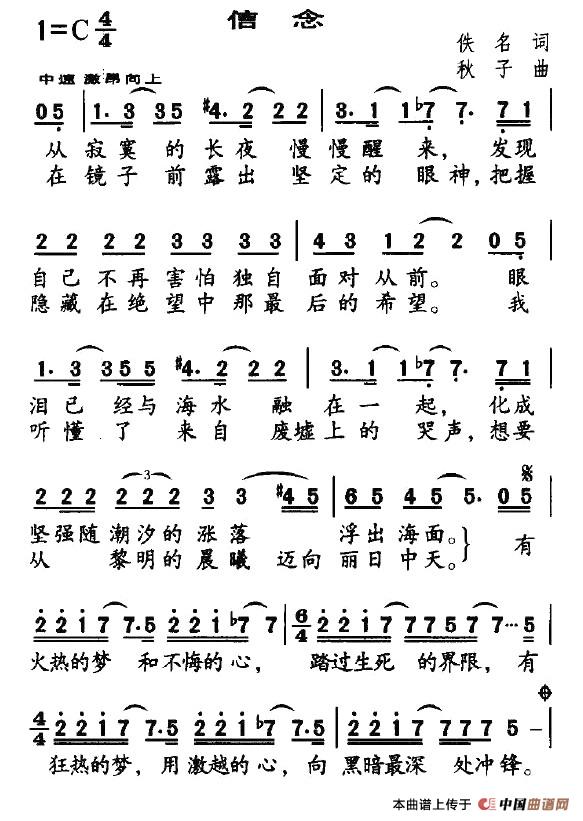 信念
1=C 4/4
佚名 词
中速 激昂向上
秋子 曲
0 5 | 1. 3 3 5 #4. 2 2 2 | 3. 1 1 b7 7. 7 1 |
从寂寞的长夜 慢慢醒 来， 发现
在镜子 前露出 坚定的 眼神，把握
2 2 2 2 3 3 3 3 | 4 3 1 2 2 0 5 |
自己 不再害怕独自 面对从前。 眼
隐藏在绝望中那最 后的希望。 我
1. 3 3 5 5 #4. 2 2 2 | 3. 1 1 b7 7. 7 1 |
泪已 经与海水 融 在 一 起， 化成
听懂 了 来自 废墟上的 哭声，想要
2 2 2 2 2 2 3 3 #4 5 | 6 5 4 5 5. 0 5
坚强随潮汐的涨落 浮出海面。 有
从 黎明的晨曦 迈向 丽日中天。
2 2 1 7 7. 5 2 2 1 b7 7 | 6/4 2 2 1 7 7 7 7 5 7 7··· 5 |
火热的梦 和不悔的心， 踏过生死 的界限，有
4/4 2 2 1 7 7. 5 2 2 1 b7 7. 5 | 2 2 2 1 7 7 7 7 5 － |
狂热的梦，用激越的心，向黑暗最深 处冲锋。
本曲谱上传于 中国曲谱网